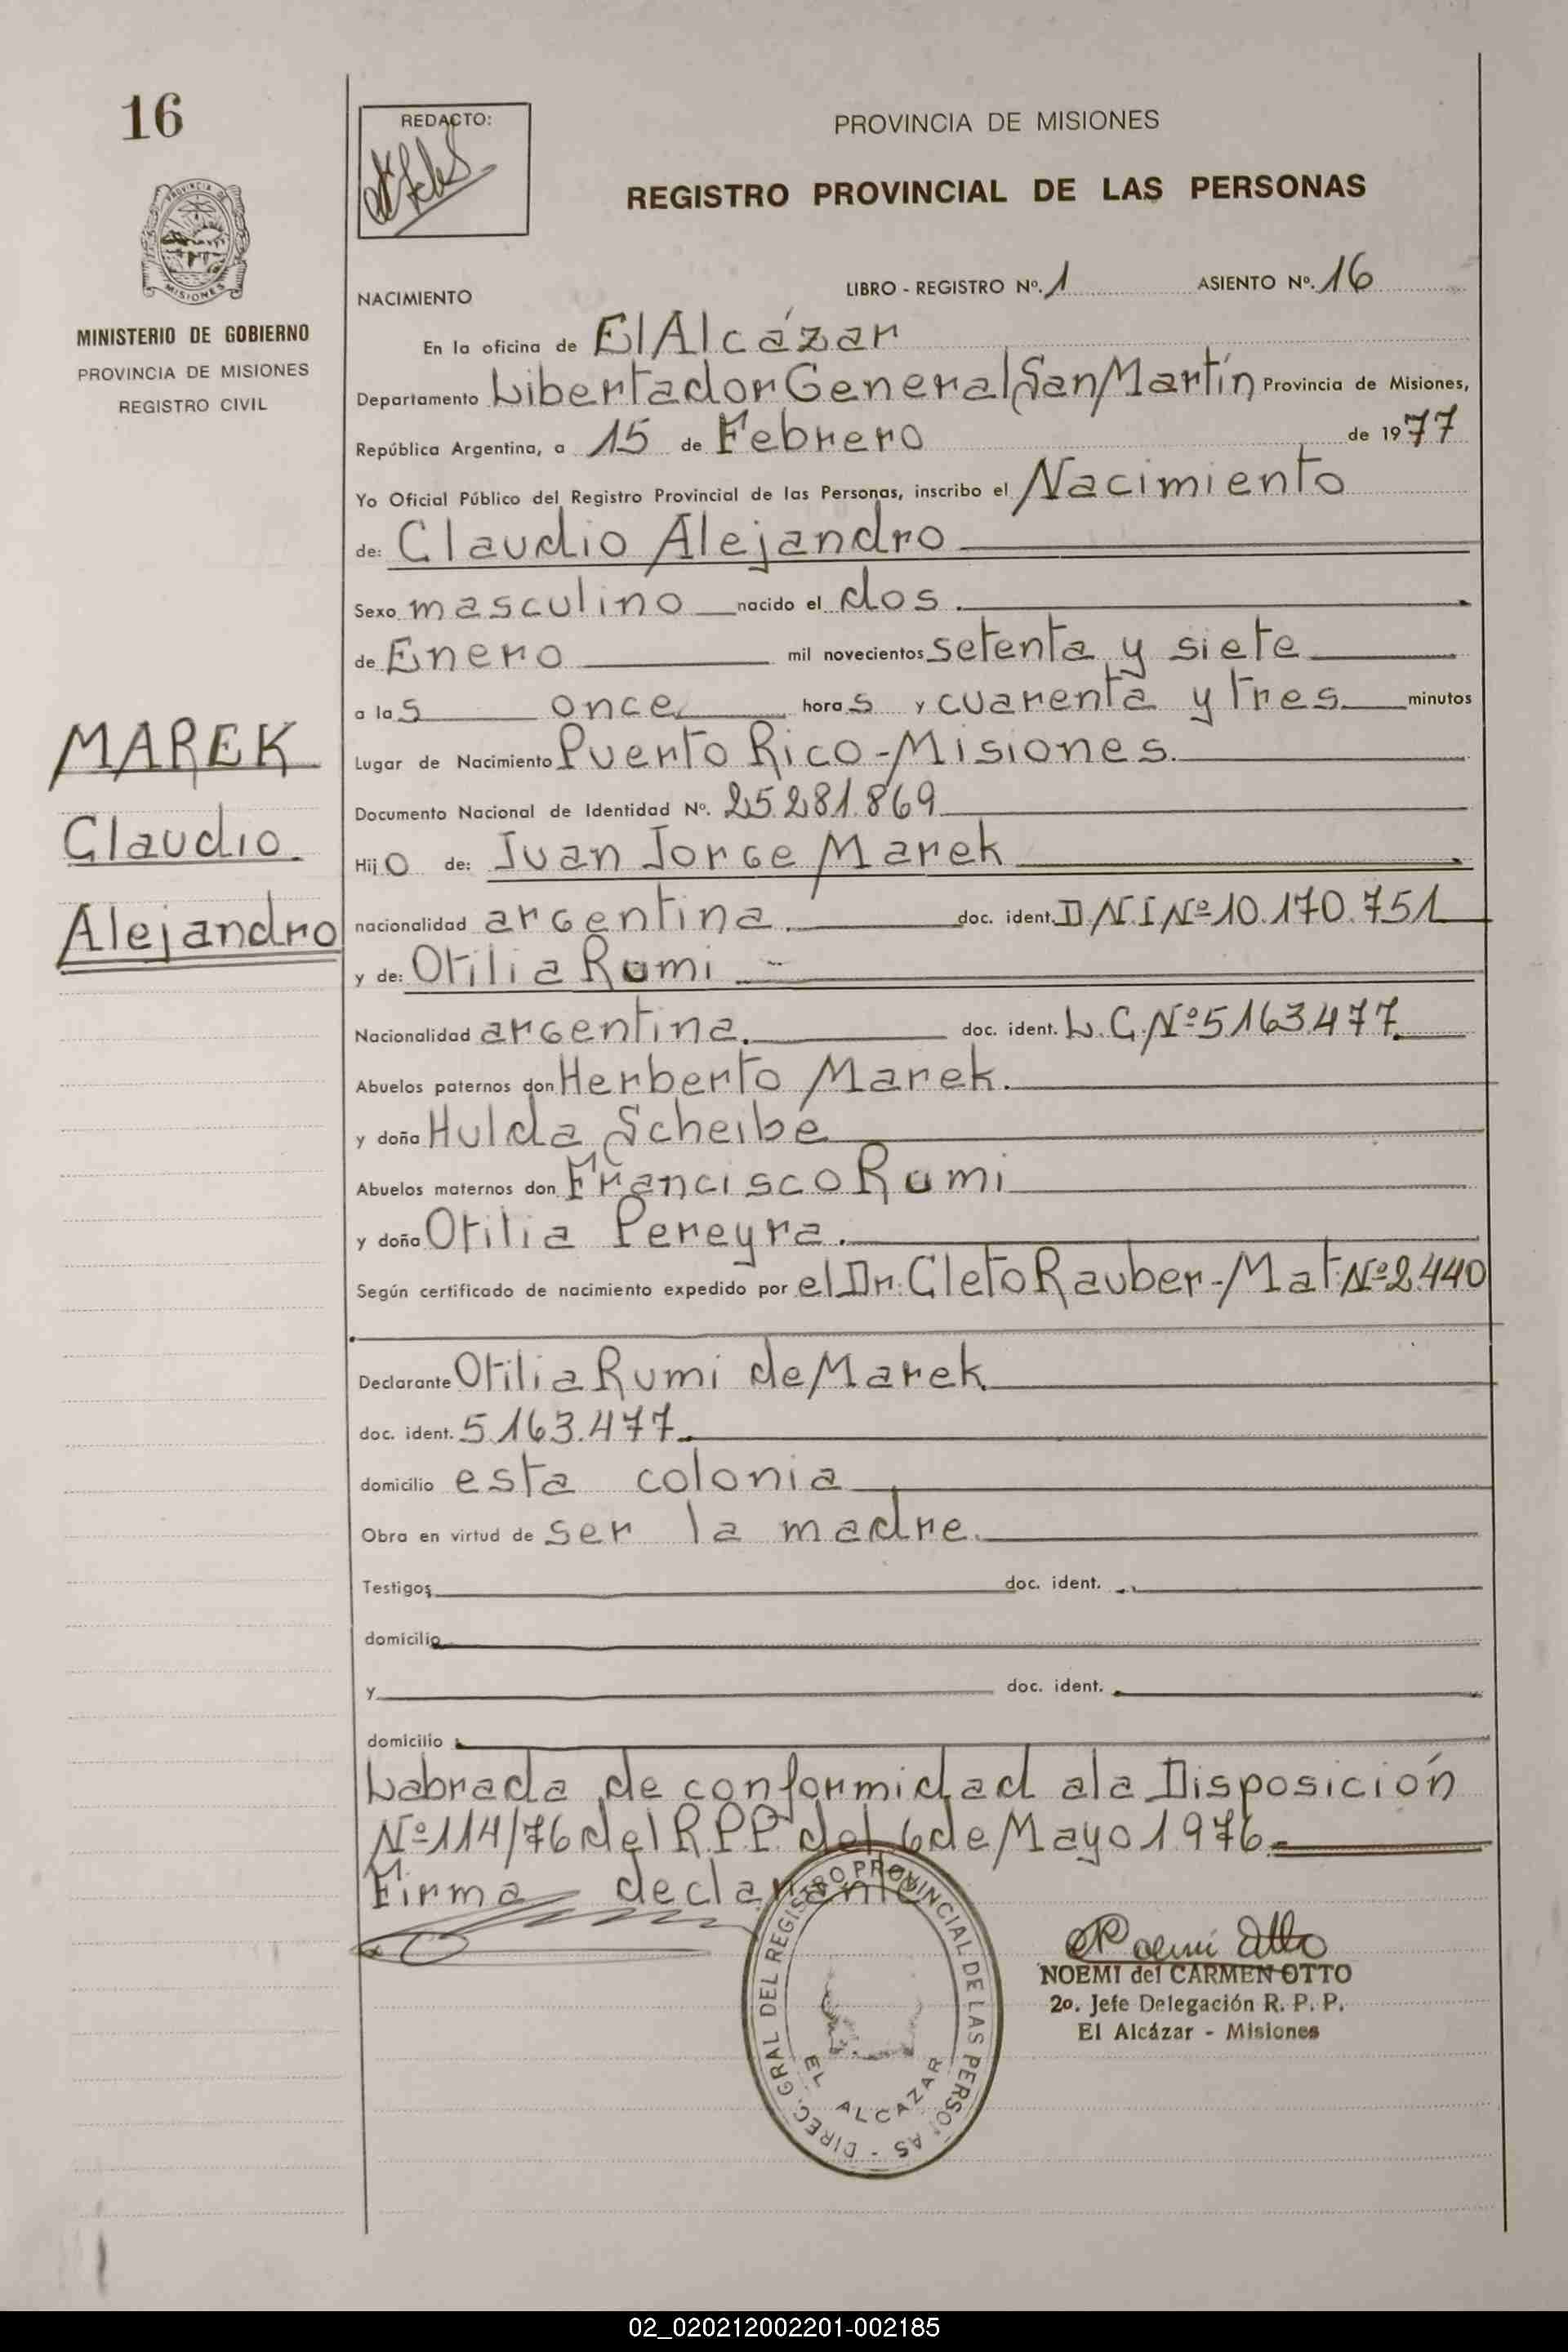 16
PROVINCIA DE
MISIONES
MINISTERIO DE GOBIERNO
PROVINCIA DE MISIONES
REGISTRO CIVIL
MAREK
Claudio
Alejandro
REDACTO:
PROVINCIA DE MISIONES
REGISTRO PROVINCIAL DE LAS PERSONAS
NACIMIENTO LIBRO - REGISTRO Nº. 1 ASIENTO Nº. 16
En la oficina de El Alcázar
Departamento Libertador General San Martín Provincia de Misiones,
República Argentina, a 15 de Febrero de 1977
Yo Oficial Público del Registro Provincial de las Personas, inscribo el Nacimiento
de: Claudio Alejandro
Sexo masculino nacido el dos.
de Enero mil novecientos setenta y siete
a las once horas y cuarenta y tres minutos
Lugar de Nacimiento Puerto Rico-Misiones.
Documento Nacional de Identidad Nº. 25.281.869
Hijo de: Juan Jorge Marek
nacionalidad argentina. doc. ident. D.N.I Nº 10.170.751
y de: Otilia Rumi
Nacionalidad argentina. doc. ident. L.C. Nº 5.163.477.
Abuelos paternos don Herberto Marek.
y doña Hulda Scheibe
Abuelos maternos don Francisco Rumi
y doña Otilia Pereyra.
Según certificado de nacimiento expedido por el Dr. Cleto Rauber-Mat. Nº 2.440
Declarante Otilia Rumi de Marek
doc. ident. 5.163.477.
domicilio esta colonia
Obra en virtud de ser la madre.
Testigos doc. ident.
domicilio
y doc. ident.
domicilio
Labrada de conformidad a la Disposición
Nº 114/76 del R.P.P. del 6 de Mayo 1976.
Firma declarante
DIREC. GRAL DEL REGISTRO PROVINCIAL DE LAS PERSONAS -
EL ALCAZAR
Noemi Otto
NOEMI del CARMEN OTTO
2o. Jefe Delegación R. P. P.
El Alcázar - Misiones
02_020212002201-002185